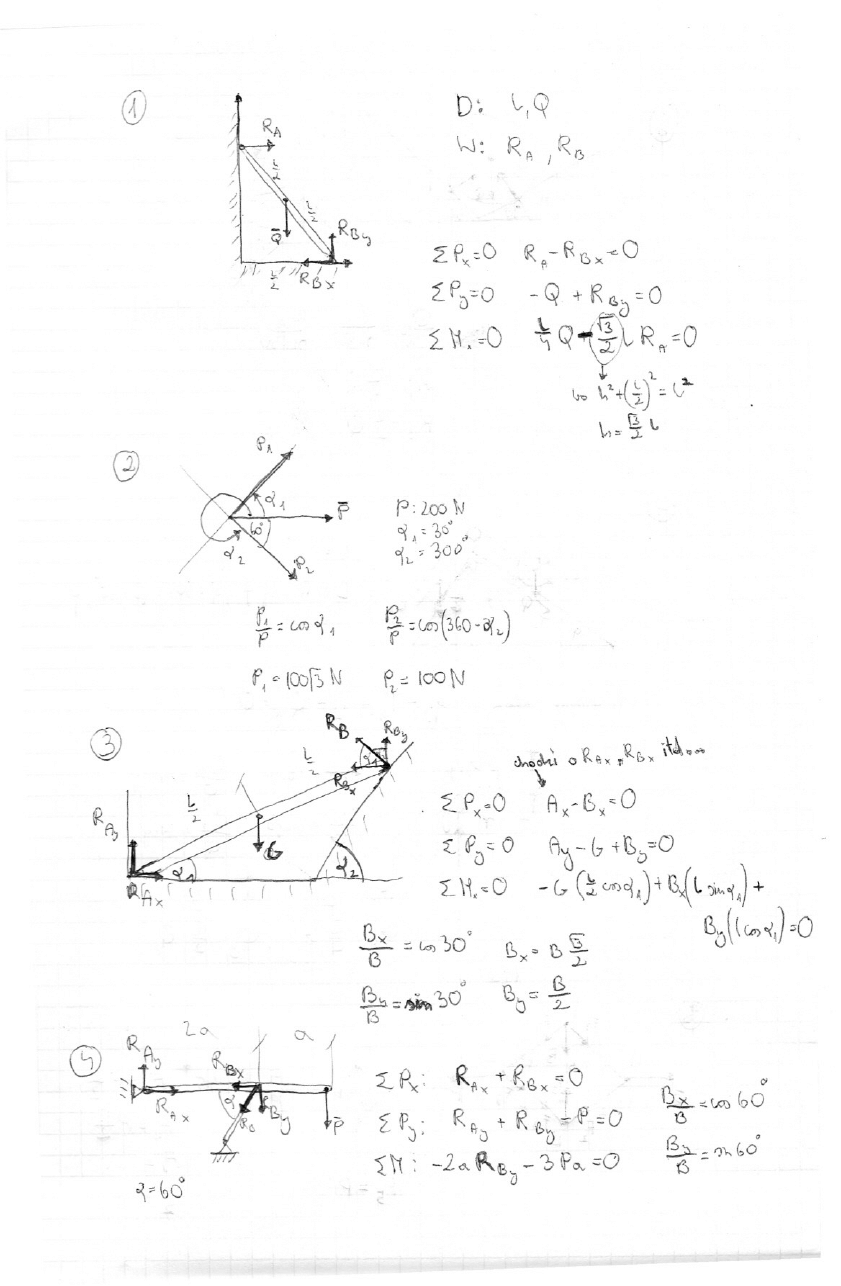 ①
R_A
L/2
L/2
Q̄
R_By
L/2
R_Bx
D: L, Q
W: R_A, R_B
ΣP_x=0 R_A-R_Bx=0
ΣP_y=0 -Q + R_By=0
ΣM.=0 L/4 Q - √3/2 L R_A=0
bo h²+(L/2)²=L²
h=√3/2 L
②
P_1
α_1
P̄
60°
α_2
P_2
P: 200 N
α_1=30°
α_2=300°
P_1/P = cos α_1 P_2/P = cos(360-α_2)
P_1=100√3 N P_2=100 N
③
R_B
R_By
L/2
α_1
R_Bx
L/2
R_Ay
G
R_Ax
α_1
α_2
chodzi o R_Ax, R_Bx itd...
ΣP_x=0 A_x-B_x=0
ΣP_y=0 A_y-G+B_y=0
ΣM.=0 -G(L/2 cos α_1)+B_x(L sin α_1)+
B_y(L cos α_1)=0
B_x/B = cos 30° B_x=B √3/2
B_y/B = sin 30° B_y=B/2
④
2a
a
R_Ay
R_Bx
R_Ax
α
R_B
R_By
P̄
α=60°
ΣP_x: R_Ax + R_Bx=0
ΣP_y: R_Ay + R_By - P=0
ΣM: -2a R_By - 3Pa=0
B_x/B = cos 60°
B_y/B = sin 60°